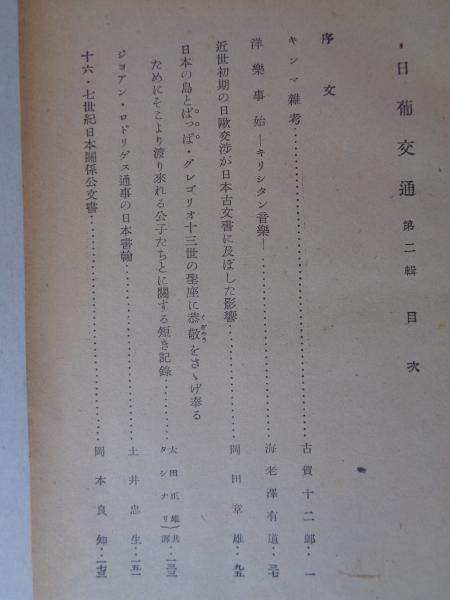 日葡交通 第二輯 目次
序文
キンマ雜考……古賀十二郎…一
洋樂事始―キリシタン音樂―……海老澤有道…三七
近世初期の日歐交渉が日本古文書に及ぼした影響……岡田章雄…九五
日本の島とぱっぱ・グレゴリオ十三世の聖座に恭敬をさゝげ奉る
ためにそこより渡り來れる公子たちとに關する短き記錄……太田正雄 タシナリ 共譯…一三三
ジョアン・ロドリゲス通事の日本書翰……土井忠生…一五一
十六・七世紀日本關係公文書……岡本良知…一七三